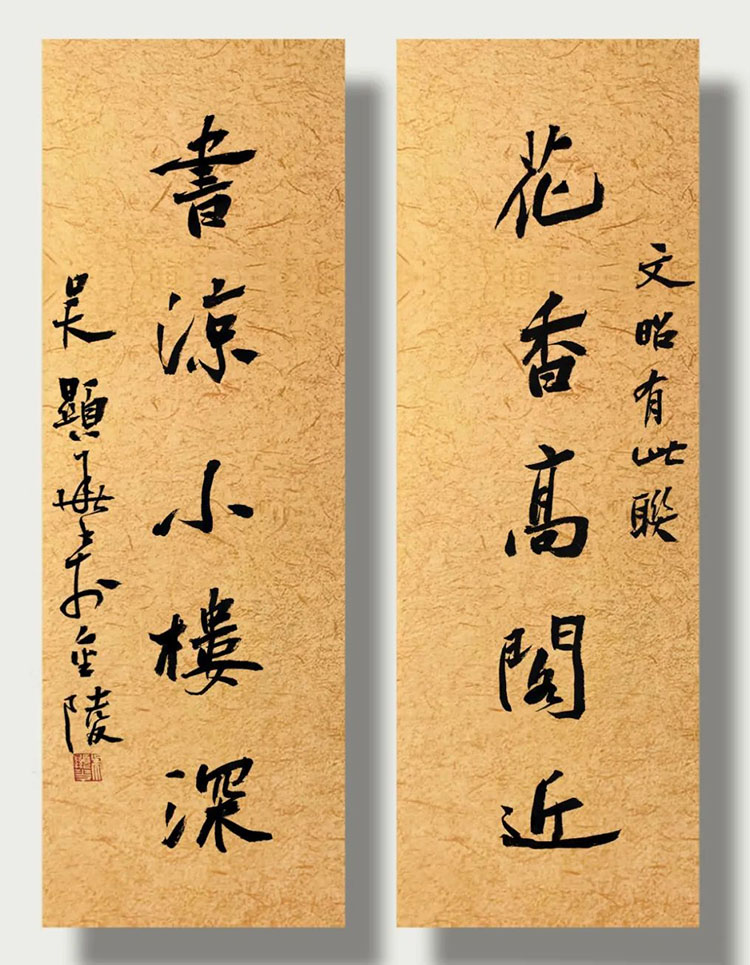 文昭有此聯
花香高閣近
書涼小樓深
吳顯華於金陵